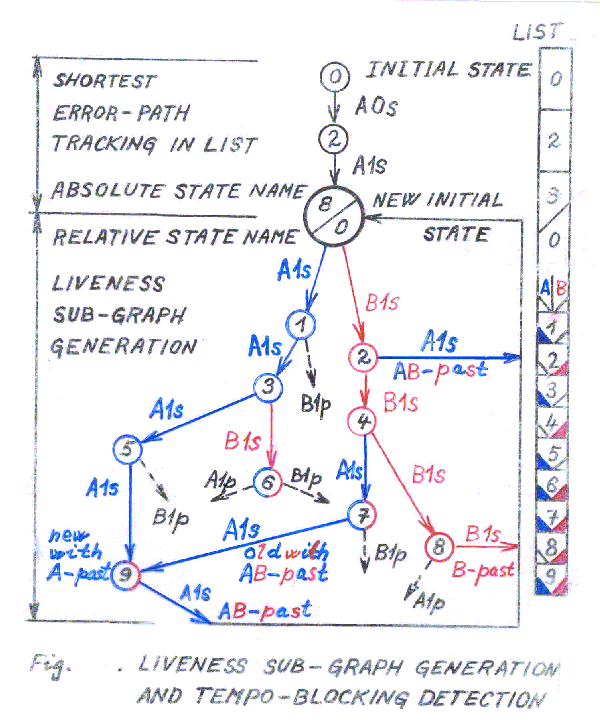 LIST
SHORTEST
ERROR-PATH
TRACKING IN LIST
ABSOLUTE STATE NAME
RELATIVE STATE NAME
LIVENESS
SUB-GRAPH
GENERATION
0 INITIAL STATE
A0s
2
A1s
8
0
NEW INITIAL
STATE
A1s
B1s
1
2
A1s
AB-past
A1s
B1p
B1s
3
4
A1s
B1s
B1s
5
A1s
B1p
A1p
6
B1p
A1s
7
B1p
8
B1s
B-past
A1p
A1s
old with
AB-past
new
with
A-past
9
A1s
AB-past
0
2
3
0
A B
1
2
3
4
5
6
7
8
9
Fig. . LIVENESS SUB-GRAPH GENERATION
AND TEMPO-BLOCKING DETECTION